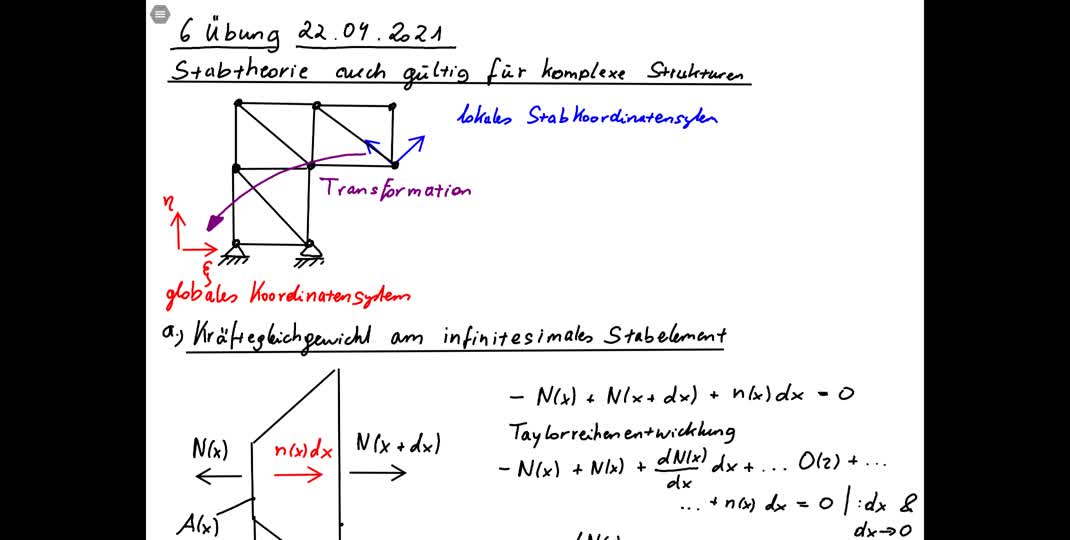 6 Übung 22.04.2021
Stabtheorie auch gültig für komplexe Strukturen
lokales Stabkoordinatensystem
Transformation
η
ξ
globales Koordinatensystem
a.) Kräftegleichgewicht am infinitesimales Stabelement
- N(x) + N(x + dx) + n(x) dx = 0
Taylorreihenentwicklung
N(x) n(x)dx N(x + dx)
- N(x) + N(x) + dN(x)/dx dx + ... O(2) + ...
... + n(x) dx = 0 | :dx &
dx→0
A(x)